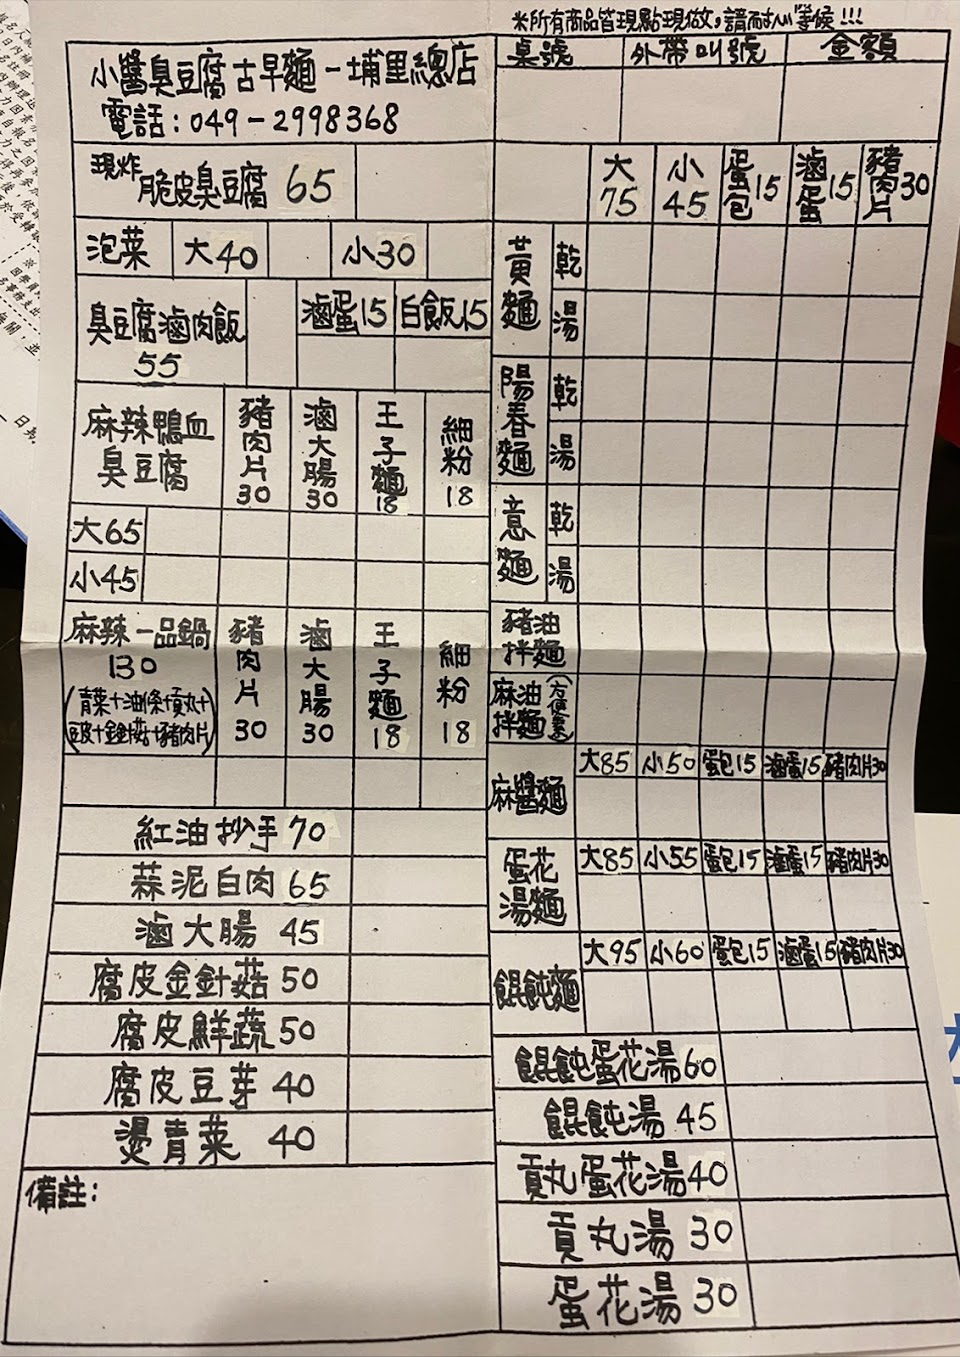 *所有商品皆現點現做，請耐心等候!!!
小醬臭豆腐古早麵-埔里總店
電話:049-2998368
桌號 外帶叫號 金額
現炸脆皮臭豆腐 65
泡菜 大40 小30
臭豆腐滷肉飯 滷蛋15 白飯15
55
麻辣鴨血臭豆腐 豬肉片30 滷大腸30 王子麵18 細粉18
大65
小45
麻辣一品鍋 豬肉片30 滷大腸30 王子麵18 細粉18
130
(青菜+油條+貢丸+
豆皮+金針菇+豬肉片)
紅油抄手70
蒜泥白肉65
滷大腸 45
腐皮金針菇50
腐皮鮮蔬50
腐皮豆芽40
燙青菜 40
備註:
大75 小45 蛋包15 滷蛋15 豬肉片30
黃麵 乾
湯
陽春麵 乾
湯
意麵 乾
湯
豬油拌麵
麻油拌麵
麻醬麵 大85 小50 蛋包15 滷蛋15 豬肉片30
蛋花湯麵 大85 小55 蛋包15 滷蛋15 豬肉片30
餛飩麵 大95 小60 蛋包15 滷蛋15 豬肉片30
餛飩蛋花湯60
餛飩湯 45
貢丸蛋花湯40
貢丸湯 30
蛋花湯 30